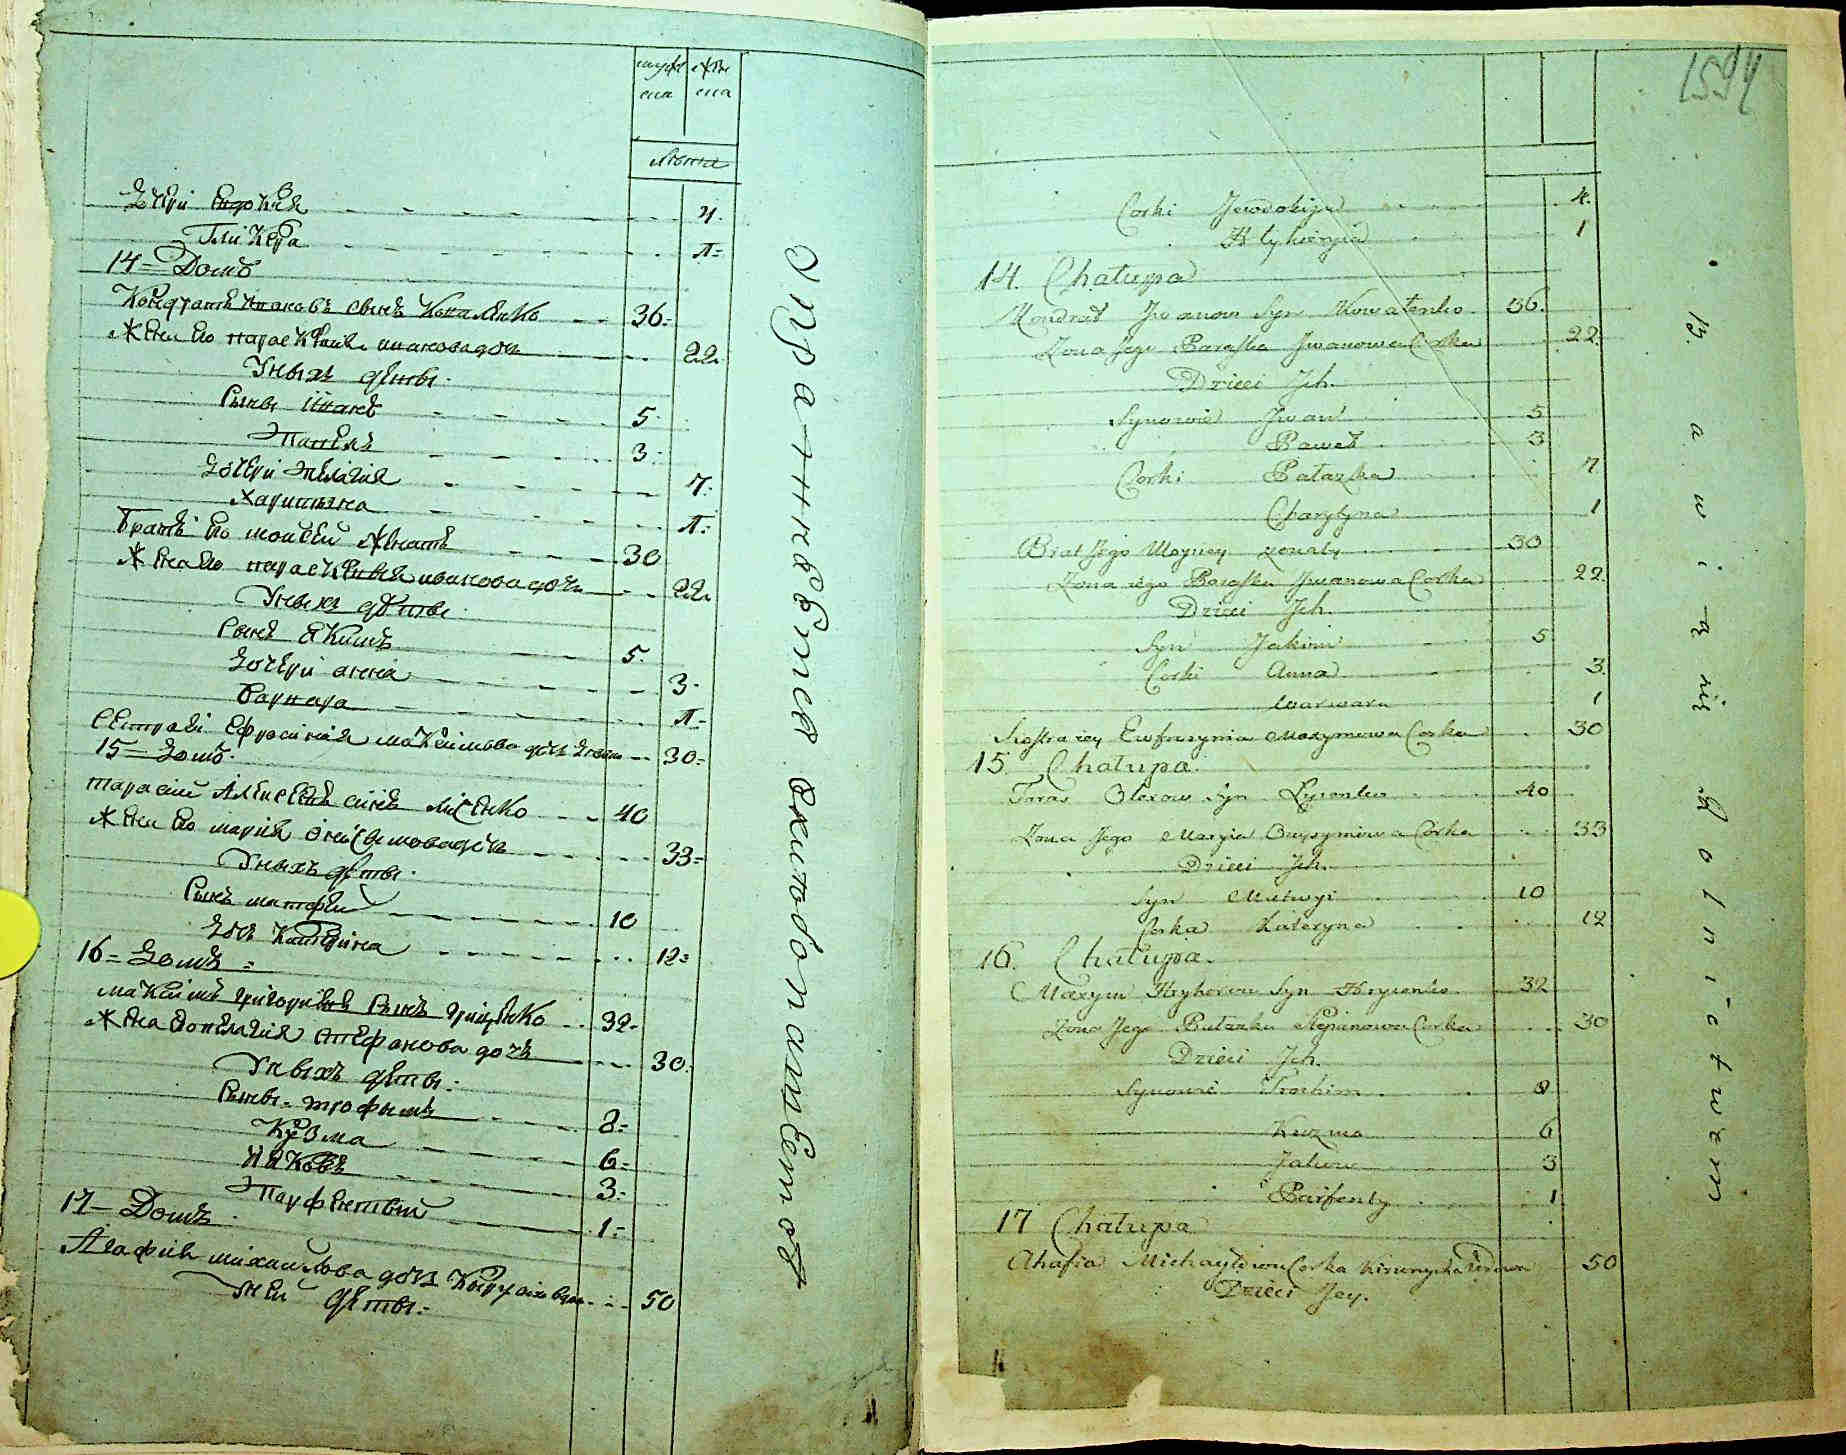 муже женс
ска ска
лѣта
Дочери Евдокия 4.
Гликера 1=
14= Домъ
Кондратъ Ивановъ сынъ Коваленко 36=
Жена его параскевия иванова дочь 22
У нихъ дѣти.
Сыны Иванъ 5
Павелъ 3
Дочери Пелагия 7.
Харитына 1=
Братъ его моисей женатъ 30
Жена его параскевия иванова дочь 22
У нихъ дѣти
Сынъ Якимъ 5.
Дочери анна 3.
Варвара 1=
Сестра ей Ефросиния максимова дочь 30=
15= Домъ.
тарасий Алексеевъ сынъ лисенко 40
Жена его мария онисимова дочь 33=
У нихъ дѣти.
Сынъ матфей 10
дочь Катерина 12=
16= Домъ=
максимъ григориевъ сынъ гриценко 32=
Жена его пелагия стефанова дочь 30.
У нихъ дѣти.
Сыны= трофимъ 8=
Кузма 6=
Яковъ 3=
Парфентий 1=
17= Домъ
Агафия михайлова дочь 50
У ней дѣти=
1594
Corki Jewdokija 4.
Hlykierya 1
14. Chałupa
Kondrat Jwanow Syn Kowalenko 36.
Zona Jego Paraska Jwanowa Corka 22.
Dzieci Jch.
Synowie Jwan 5
Paweł 3
Corki Pałazka 7
Charytyna 1
Brat Jego Moysiey zonaty 30
Zona jego Paraska Jwanowa Corka 22.
Dzieci Jch.
Syn Jakim 5
Corki Anna 3.
Warwara 1
Siostra jey Ewfrozynia Maxymowa Corka 30
15. Chałupa.
Taras Olexow Syn Lysenko 40
Zona Jego Maryia Onysymowa Corka 33
Dzieci Jch.
Syn Matwyi 10
Corka Kateryna 12
16. Chałupa.
Maxym Hryhorow Syn Hrycenko 32
Zona Jego Pałazka Stepanowa Corka 30
Dzieci Jch.
Synowie Trochim 8
Kuzma 6
Jakow 3
Parfenty 1
17 Chałupa
Ahafia Michayłowa Corka wdowa 50
Dzieci Jey.